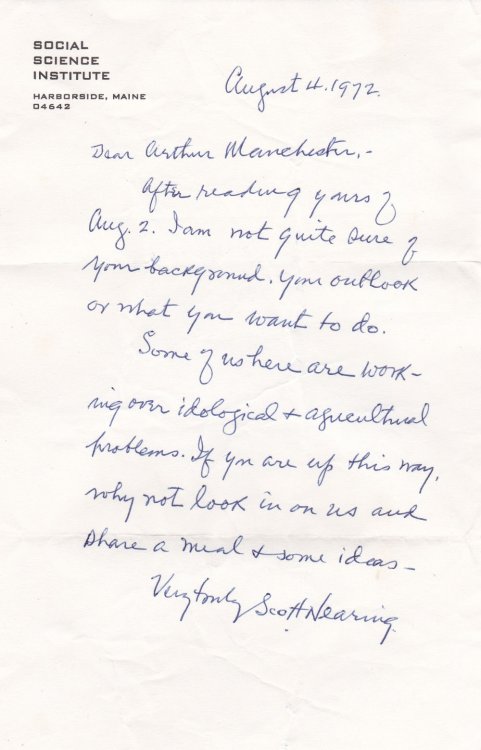 SOCIAL
SCIENCE
INSTITUTE
HARBORSIDE, MAINE
04642
August 4. 1972.
Dear Arthur Manchester,-
After reading yours of
Aug. 2. I am not quite sure of
your background. Your outlook
or what you want to do.
Some of us here are work-
ing over idological & agricultural
problems. If you are up this way,
why not look in on us and
share a meal & some ideas-
Very truly Scott Nearing.